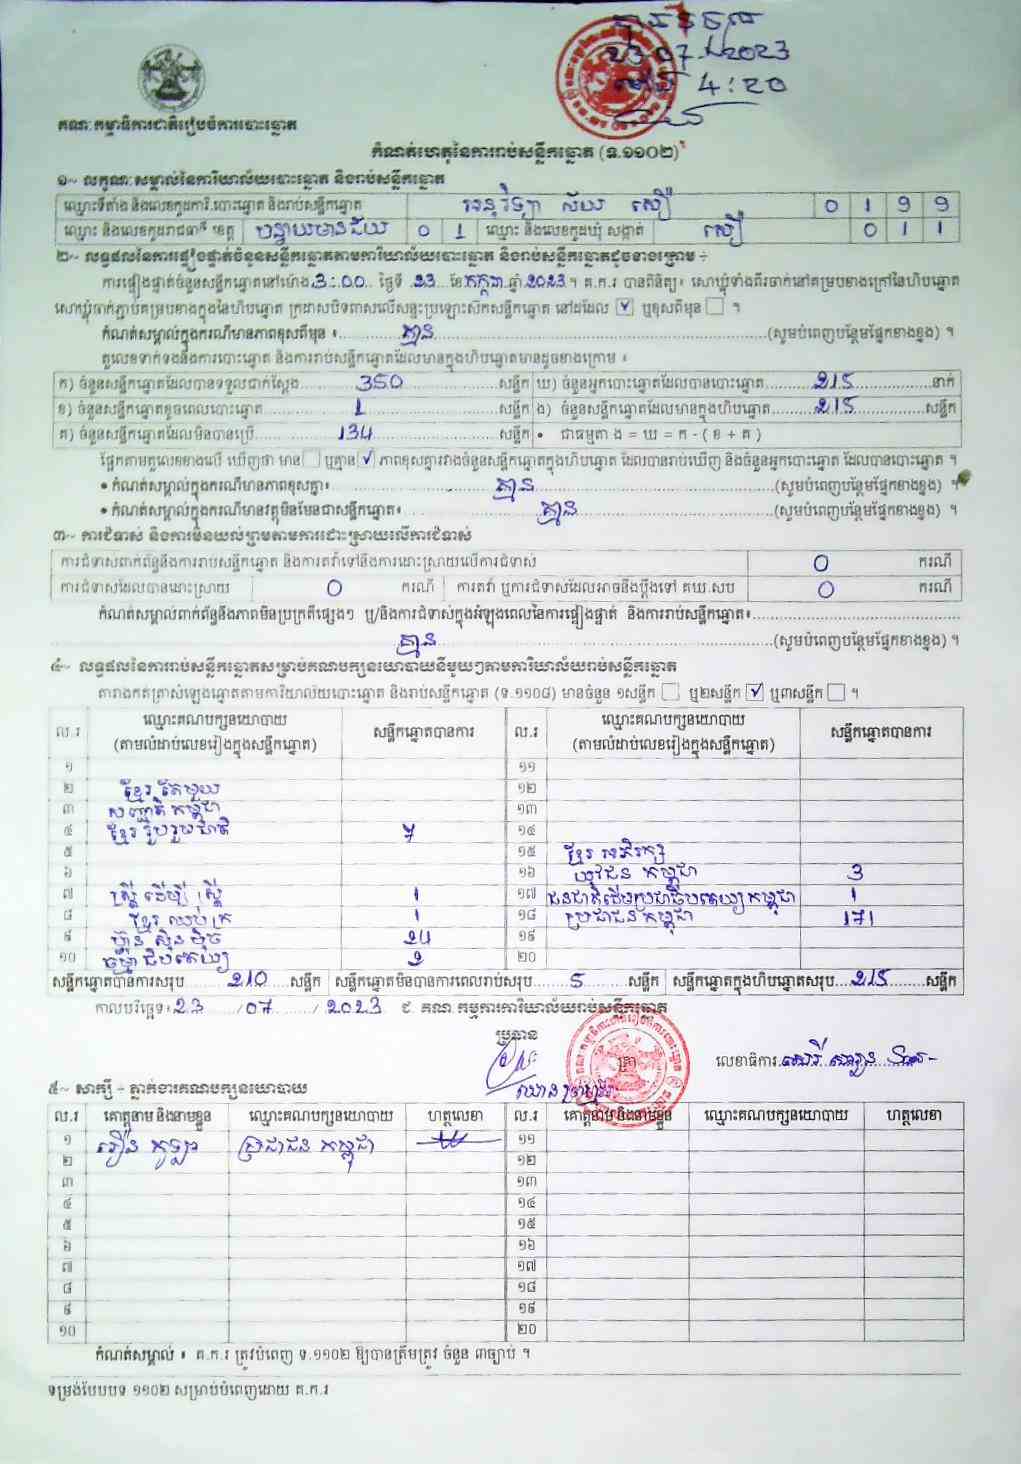 ការចេញ
23 07 2023
ម៉ោង 4:20
គណៈកម្មាធិការជាតិរៀបចំការបោះឆ្នោត
កំណត់ហេតុនៃការរាប់សន្លឹកឆ្នោត (ទ.១១០២)
១~ លក្ខណៈសម្គាល់នៃការិយាល័យបោះឆ្នោត និងរាប់សន្លឹកឆ្នោត
ឈ្មោះទីតាំង និងលេខកូដការិ.បោះឆ្នោត និងរាប់សន្លឹកឆ្នោត អនុវិទ្យាល័យ សឿ 0 1 9 9
ឈ្មោះ និងលេខកូដរាជធានី ខេត្ត បន្ទាយមានជ័យ 0 1 ឈ្មោះ និងលេខកូដឃុំ សង្កាត់ សឿ 0 1 1
២~ លទ្ធផលនៃការផ្ទៀងផ្ទាត់ចំនួនសន្លឹកឆ្នោតតាមការិយាល័យបោះឆ្នោត និងរាប់សន្លឹកឆ្នោតដូចខាងក្រោម ÷
ការផ្ទៀងផ្ទាត់ចំនួនសន្លឹកឆ្នោតនៅម៉ោង 3:00 ថ្ងៃទី 23 ខែកក្កដា ឆ្នាំ 2023 ។ គ.ក.រ បានពិនិត្យ៖ សោឃ្លុំទាំងពីរចាក់នៅគម្របខាងក្រៅនៃហិបឆ្នោត
សោឃ្លុំចាក់ភ្ជាប់គម្របខាងក្នុងនៃហិបឆ្នោត ក្រដាសបិទពាសលើសន្ទះប្រឡោះស៊កសន្លឹកឆ្នោត នៅដដែល ☑ ឬខុសពីមុន ☐ ។
កំណត់សម្គាល់ក្នុងករណីមានភាពខុសពីមុន ៖ គ្មាន (សូមបំពេញបន្ថែមផ្នែកខាងខ្នង) ។
តួលេខទាក់ទងនឹងការបោះឆ្នោត និងការរាប់សន្លឹកឆ្នោតដែលមានក្នុងហិបឆ្នោតមានដូចខាងក្រោម ៖
ក) ចំនួនសន្លឹកឆ្នោតដែលបានទទួលជាក់ស្តែង 350 សន្លឹក ឃ) ចំនួនអ្នកបោះឆ្នោតដែលបានបោះឆ្នោត 215 នាក់
ខ) ចំនួនសន្លឹកឆ្នោតខូចពេលបោះឆ្នោត 1 សន្លឹក ង) ចំនួនសន្លឹកឆ្នោតដែលមានក្នុងហិបឆ្នោត 215 សន្លឹក
គ) ចំនួនសន្លឹកឆ្នោតដែលមិនបានប្រើ 134 សន្លឹក • ជាធម្មតា ង = ឃ = ក - ( ខ + គ )
ផ្អែកតាមតួលេខខាងលើ ឃើញថា មាន ☐ ឬគ្មាន ☑ ភាពខុសគ្នារវាងចំនួនសន្លឹកឆ្នោតក្នុងហិបឆ្នោត ដែលបានរាប់ឃើញ និងចំនួនអ្នកបោះឆ្នោត ដែលបានបោះឆ្នោត ។
• កំណត់សម្គាល់ក្នុងករណីមានភាពខុសគ្នា៖ គ្មាន (សូមបំពេញបន្ថែមផ្នែកខាងខ្នង) ។
• កំណត់សម្គាល់ក្នុងករណីមានវត្ថុមិនមែនជាសន្លឹកឆ្នោត៖ គ្មាន (សូមបំពេញបន្ថែមផ្នែកខាងខ្នង) ។
៣~ ការជំទាស់ និងការមិនយល់ព្រមតាមការដោះស្រាយលើការជំទាស់
ការជំទាស់ពាក់ព័ន្ធនឹងការរាប់សន្លឹកឆ្នោត និងការតវ៉ាទៅនឹងការដោះស្រាយលើការជំទាស់ 0 ករណី
ការជំទាស់ដែលបានដោះស្រាយ 0 ករណី ការតវ៉ា ឬការជំទាស់ដែលអាចនឹងប្តឹងទៅ គឃ.សប 0 ករណី
កំណត់សម្គាល់ពាក់ព័ន្ធនឹងភាពមិនប្រក្រតីផ្សេងៗ ឬ/និងការជំទាស់ក្នុងអំឡុងពេលនៃការផ្ទៀងផ្ទាត់ និងការរាប់សន្លឹកឆ្នោត៖
គ្មាន (សូមបំពេញបន្ថែមផ្នែកខាងខ្នង) ។
៤~ លទ្ធផលនៃការរាប់សន្លឹកឆ្នោតសម្រាប់គណបក្សនយោបាយនីមួយៗតាមការិយាល័យរាប់សន្លឹកឆ្នោត
តារាងកត់ត្រាសំឡេងឆ្នោតតាមការិយាល័យបោះឆ្នោត និងរាប់សន្លឹកឆ្នោត (ទ.១១០៨) មានចំនួន ១សន្លឹក ☐ ឬ២សន្លឹក ☑ ឬ៣សន្លឹក ☐ ។
ល.រ ឈ្មោះគណបក្សនយោបាយ (តាមលំដាប់លេខរៀងក្នុងសន្លឹកឆ្នោត) សន្លឹកឆ្នោតបានការ ល.រ ឈ្មោះគណបក្សនយោបាយ (តាមលំដាប់លេខរៀងក្នុងសន្លឹកឆ្នោត) សន្លឹកឆ្នោតបានការ
១ ១១
២ ខ្មែរ តែមួយ ១២
៣ សញ្ជាតិ កម្ពុជា ១៣
៤ ខ្មែរ រួបរួមជាតិ 7 ១៤
៥ ១៥ ខ្មែរ អភិរក្ស
៦ ១៦ យុវជន កម្ពុជា 3
៧ ស្ត្រី ដើម្បី ស្ត្រី 1 ១៧ ជនជាតិដើមប្រជាធិបតេយ្យកម្ពុជា 1
៨ ខ្មែរ ឈប់ក្រ 1 ១៨ ប្រជាជន កម្ពុជា 171
៩ ហ៊្វុន ស៊ិន ប៉ិច 24 ១៩
១០ ធម្មាធិបតេយ្យ 2 ២០
សន្លឹកឆ្នោតបានការសរុប 210 សន្លឹក សន្លឹកឆ្នោតមិនបានការពេលរាប់សរុប 5 សន្លឹក សន្លឹកឆ្នោតក្នុងហិបឆ្នោតសរុប 215 សន្លឹក
កាលបរិច្ឆេទ៖ 23 / 07 / 2023 ៩. គណៈកម្មការការិយាល័យរាប់សន្លឹកឆ្នោត
ប្រធាន ត្រា លេខាធិការ
៥~ សាក្សី - ភ្នាក់ងារគណបក្សនយោបាយ
ល.រ គោត្តនាម និងនាមខ្លួន ឈ្មោះគណបក្សនយោបាយ ហត្ថលេខា ល.រ គោត្តនាម និងនាមខ្លួន ឈ្មោះគណបក្សនយោបាយ ហត្ថលេខា
១ ប្រជាជន កម្ពុជា ១១
២ ១២
៣ ១៣
៤ ១៤
៥ ១៥
៦ ១៦
៧ ១៧
៨ ១៨
៩ ១៩
១០ ២០
កំណត់សម្គាល់ ៖ គ.ក.រ ត្រូវបំពេញ ទ.១១០២ ឱ្យបានត្រឹមត្រូវ ចំនួន ៣ច្បាប់ ។
ទម្រង់បែបបទ ១១០២ សម្រាប់បំពេញដោយ គ.ក.រ